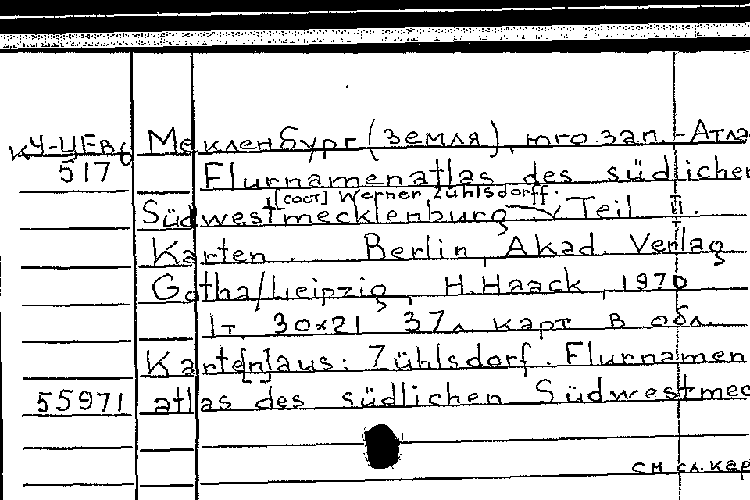 КЧ-ЦЕв6 Мекленбург (земля), юго зап. - Атла
517 Flurnamenatlas des südlichen
[сост] Werner Zühlsdorff.
Südwestmecklenburg / Teil II.
Karten. Berlin, Akad. Verlag
Gotha/Leipzig, H. Haack, 1970
1т. 30×21 37л карт в обл.
Karte[n] aus: Zühlsdorf. Flurnamen
55971 atlas des südlichen Südwestmec
см сл. кар